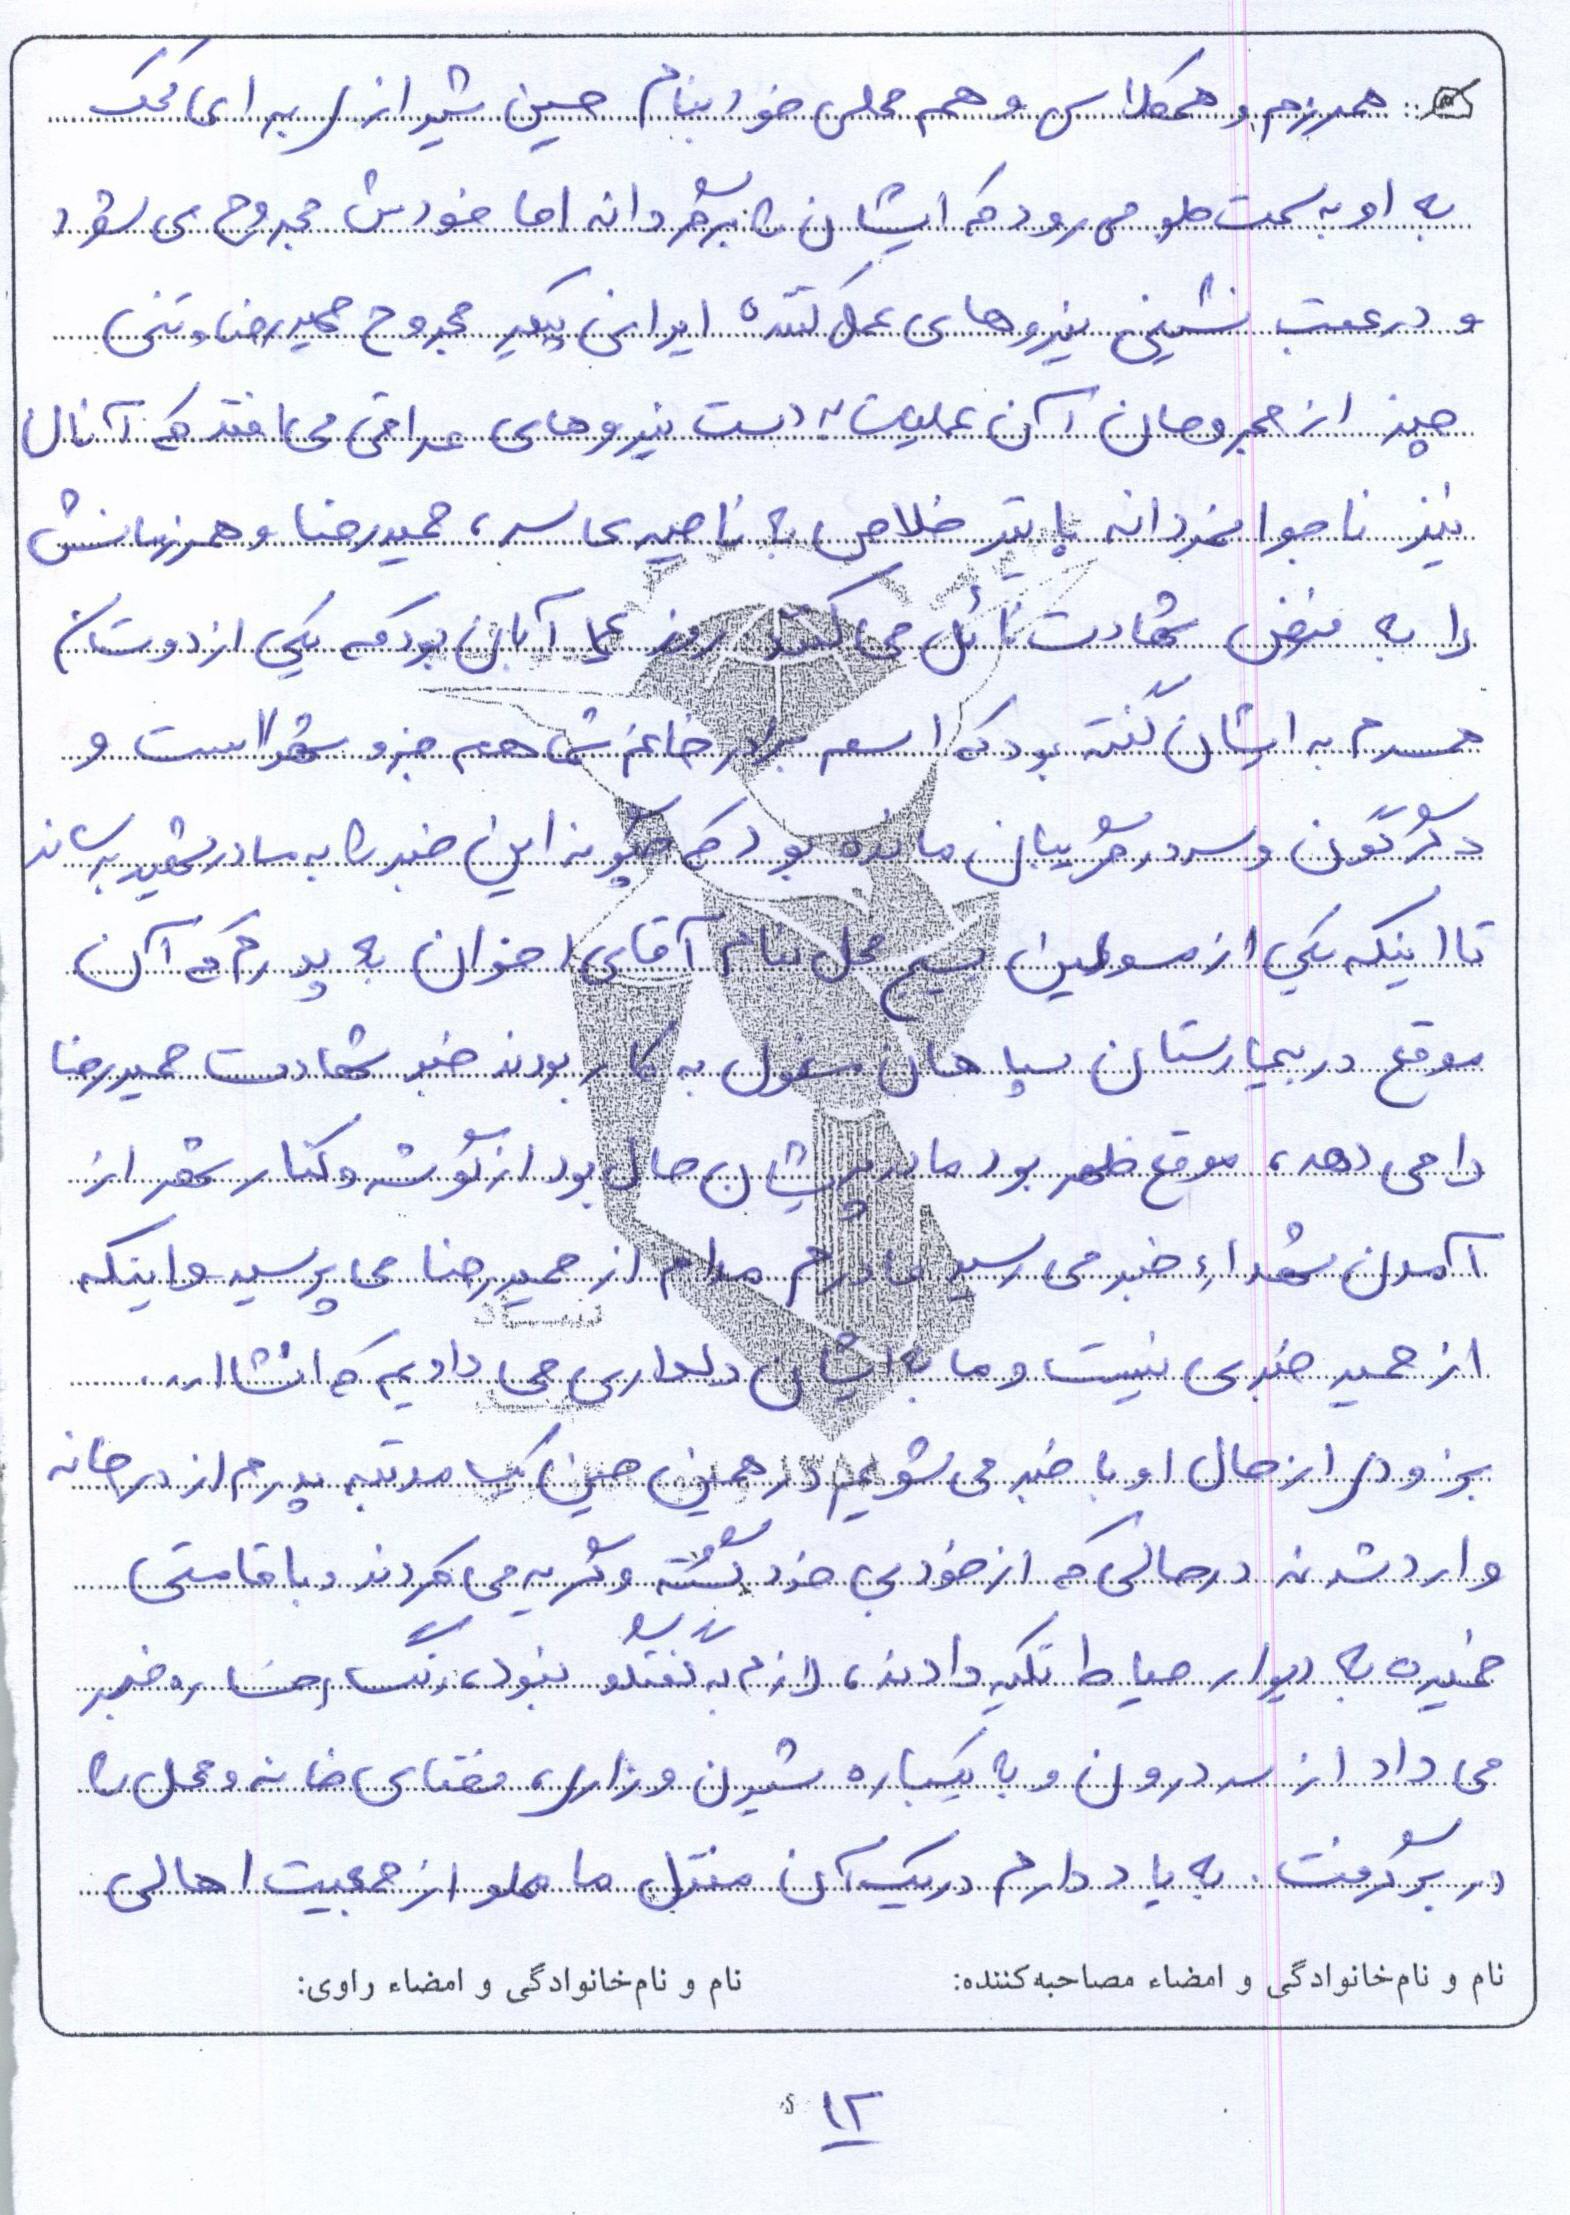 همرزم و همکلاسی و هم محلی خود بنام حسین شیرازی برای کمک
به او به سمت جلو می رود که ایشان را برگردانه اما خودش مجروح می شود
و در عقب نشینی نیروهای عمل کننده ایرانی پیکر مجروح حمیدرضا و تنی
چند از مجروحان آن عملیات به دست نیروهای عراقی می افتد که آنان
نیز ناجوانمردانه با تیر خلاص به ناحیه ی سر، حمیدرضا و همرزمانش
را به فیض شهادت نائل می کنند روز آبان بود که یکی از دوستان
همسرم به ایشان گفته بود که اسم برادر خانم شما هم جزو شهداست و
دگرگون و سر در گریبان مانده بود که چگونه این خبر را به مادر شهید برساند
تا اینکه یکی از مسولین بسیج محل بنام آقای اخوان به پدرم که آن
موقع در بیمارستان سپاهان مشغول به کار بودند خبر شهادت حمیدرضا
را می دهد، موقع ظهر بود مادر پریشان حال بود از گوشه و کنار شهر از
آمدن شهداء خبر می رسید مادرم مدام از حمیدرضا می پرسید و اینکه
از حمید خبری نیست و ما به ایشان دلداری می دادیم که انشاا...
بزودی از حال او با خبر می شویم در همین حین یک مرتبه پدرم از در خانه
وارد شدند در حالی که از خود بی خود گشته و گریه می کردند و با قامتی
خمیده به دیوار حیاط تکیه دادند، لازم به گفتگو نبود، رنگ رخساره خبر
می داد از سر درون و به یکباره شیون و زاری، فضای خانه و محل را
در بر گرفت. به یاد دارم در یک آن منزل ما مملو از جمعیت اهالی
نام و نام‌خانوادگی و امضاء مصاحبه‌کننده: نام و نام‌خانوادگی و امضاء راوی:
۱۲